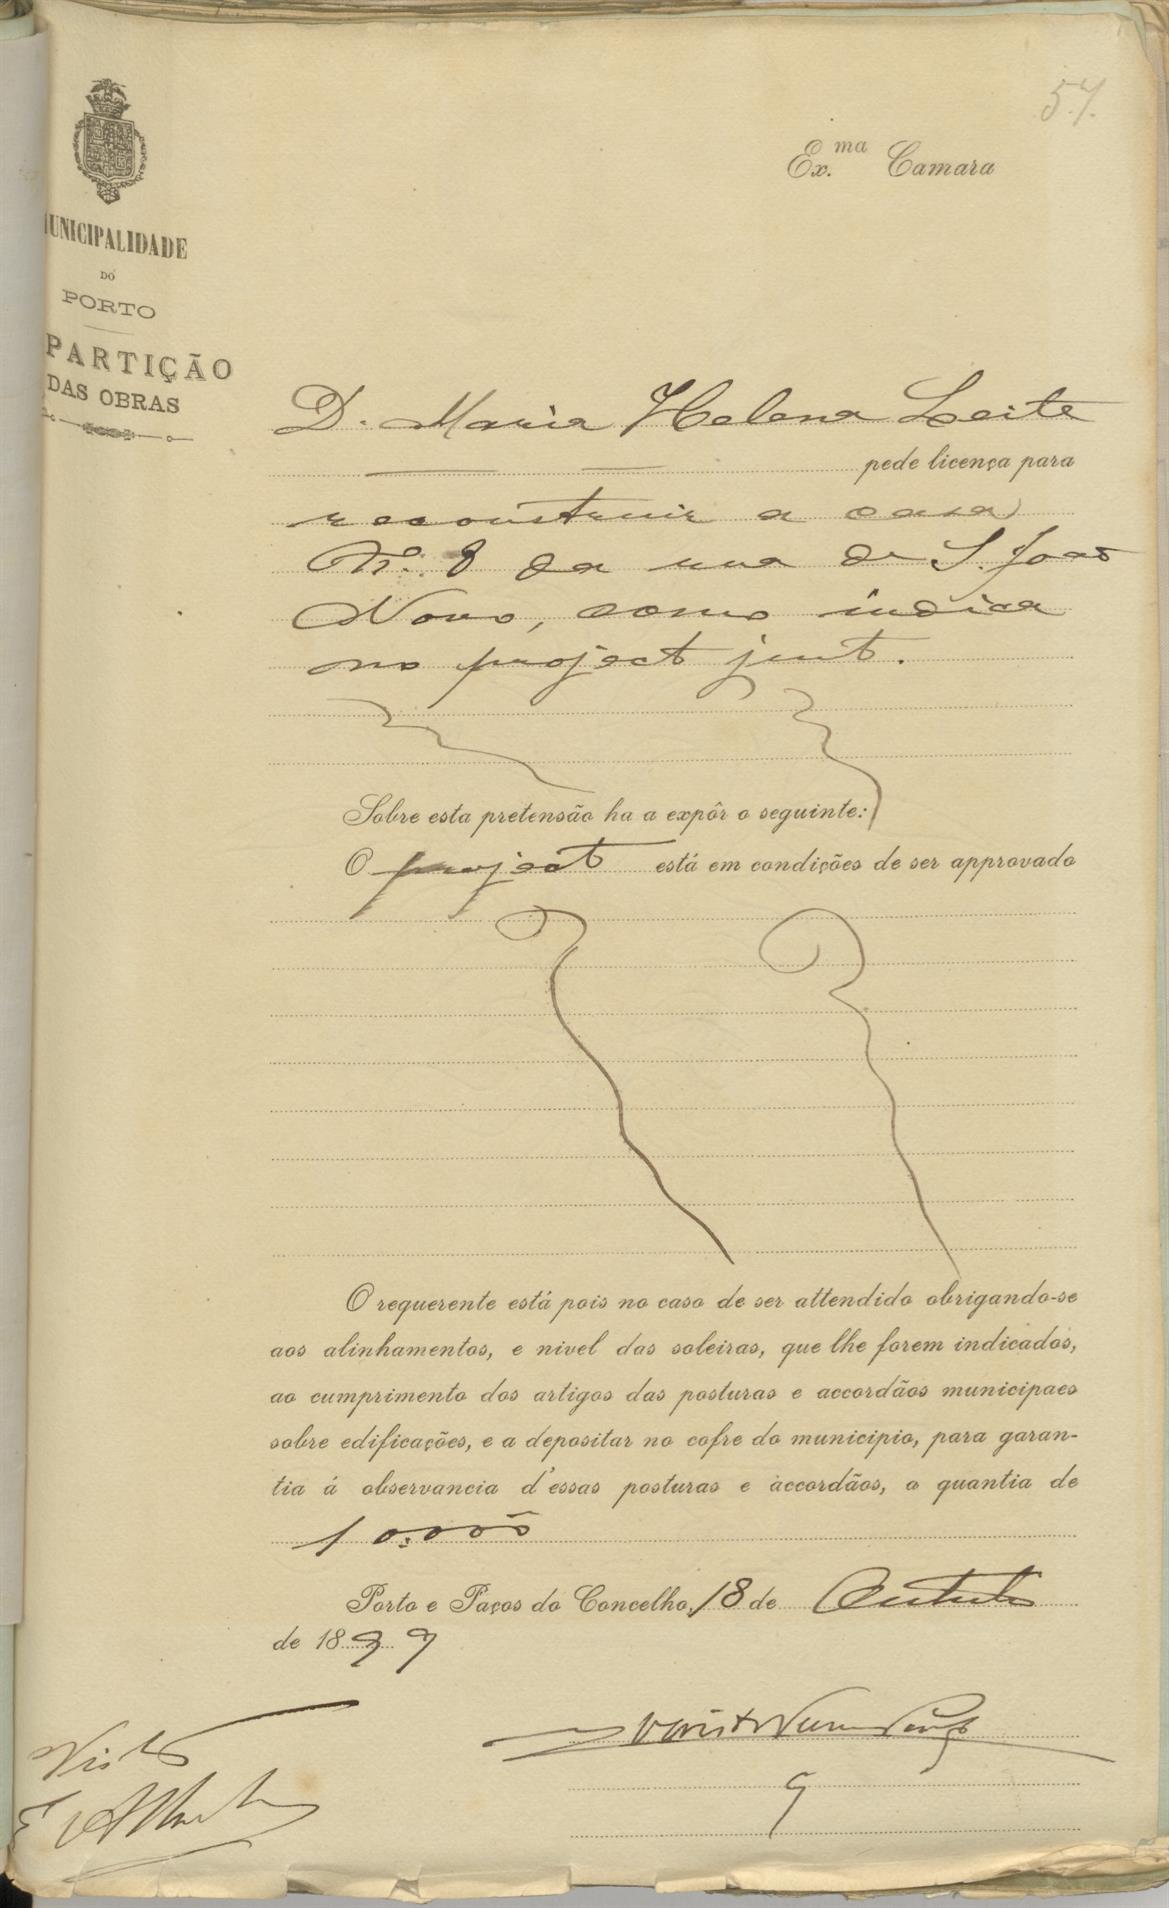 57.
Ex.ma Camara
UNICIPALIDADE
DO
PORTO
PARTIÇÃO
DAS OBRAS
D. Maria Helena Leite
pede licença para
reconstruir a casa
Nº. 8 da rua de S. João
Novo, como indica
no project junt.
Sobre esta pretensão ha a expôr o seguinte:
O project está em condições de ser approvado
O requerente está pois no caso de ser attendido obrigando-se
aos alinhamentos, e nivel das soleiras, que lhe forem indicados,
ao cumprimento dos artigos das posturas e accordãos municipaes
sobre edificações, e a depositar no cofre do municipio, para garan-
tia á observancia d'essas posturas e accordãos, a quantia de
10:000
Porto e Paços do Concelho, 18 de Outubro
de 1899
Visto